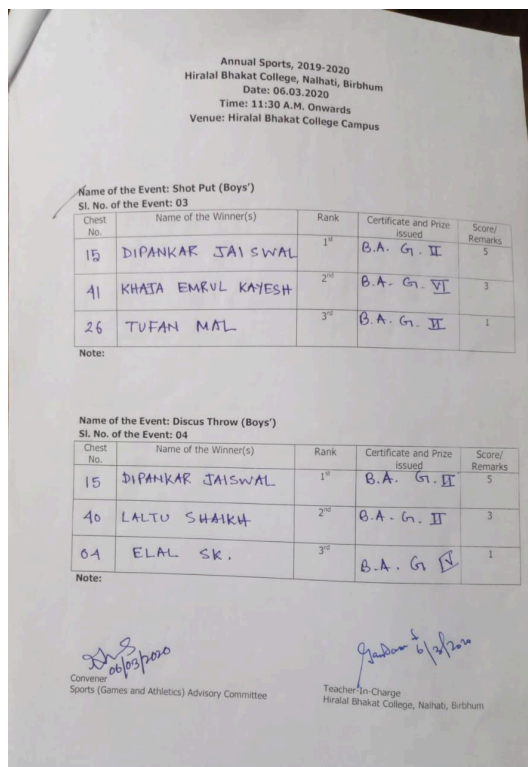 Annual Sports, 2019-2020
Hiralal Bhakat College, Nalhati, Birbhum
Date: 06.03.2020
Time: 11:30 A.M. Onwards
Venue: Hiralal Bhakat College Campus
Name of the Event: Shot Put (Boys')
Sl. No. of the Event: 03
Chest No. Name of the Winner(s) Rank Certificate and Prize issued Score/ Remarks
15 DIPANKAR JAISWAL 1st B.A. G. II 5
41 KHAJA EMRUL KAYESH 2nd B.A. G. VI 3
26 TUFAN MAL 3rd B.A. G. II 1
Note:
Name of the Event: Discus Throw (Boys')
Sl. No. of the Event: 04
Chest No. Name of the Winner(s) Rank Certificate and Prize issued Score/ Remarks
15 DIPANKAR JAISWAL 1st B.A. G. II 5
40 LALTU SHAIKH 2nd B.A. G. II 3
04 ELAL SK. 3rd B.A. G IV 1
Note:
06/03/2020
6/3/2020
Convener
Sports (Games and Athletics) Advisory Committee
Teacher-In-Charge
Hiralal Bhakat College, Nalhati, Birbhum